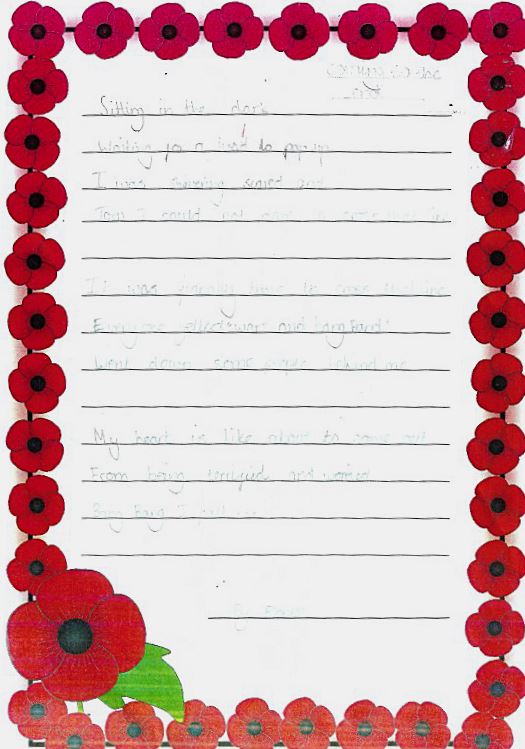 Sitting in the dark
Waiting for a head to pop up
I was shivering scared and
I could not dare to cross that line
It was finally time to cross that line
Everyone yelled "war" and bang bang
Went down some people behind me
My heart is like about to come out
From being terrified and worried
Bang Bang I
By